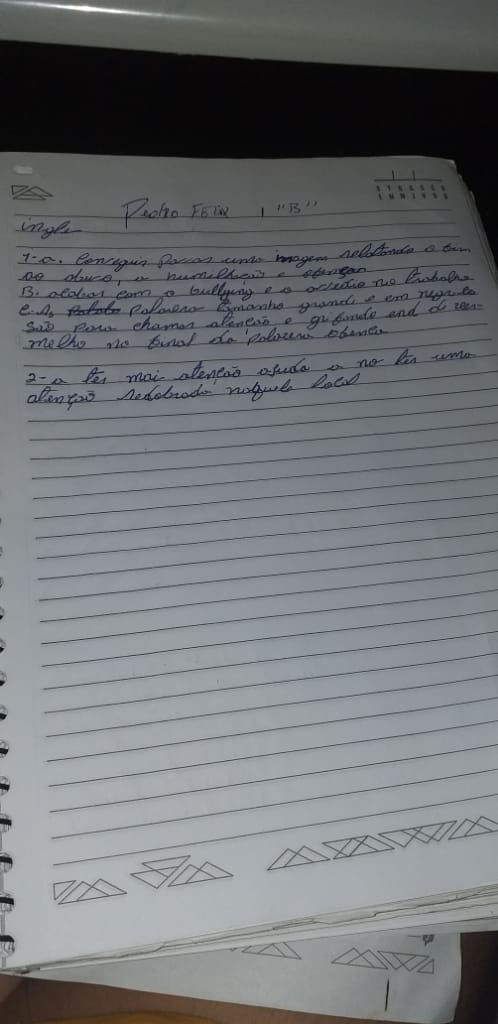 Pedro FELIX 1 "B"
ingles
1-a. Conseguir passar uma imagem relatando o
, a humilhação e ofença
B. acabar com o bullying e o assedio no trabalho
c. As palavras tamanho grande e em negri
para chamar atenção e grifando end de ver-
melho no final da palavra ofença
2-a ter mai atenção ajuda a no ter uma
atenção redobrada naquele local